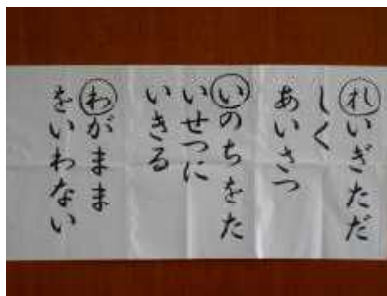 れいぎただ
しく
あいさつ
いのちをた
いせつに
いきる
わがまま
をいわない